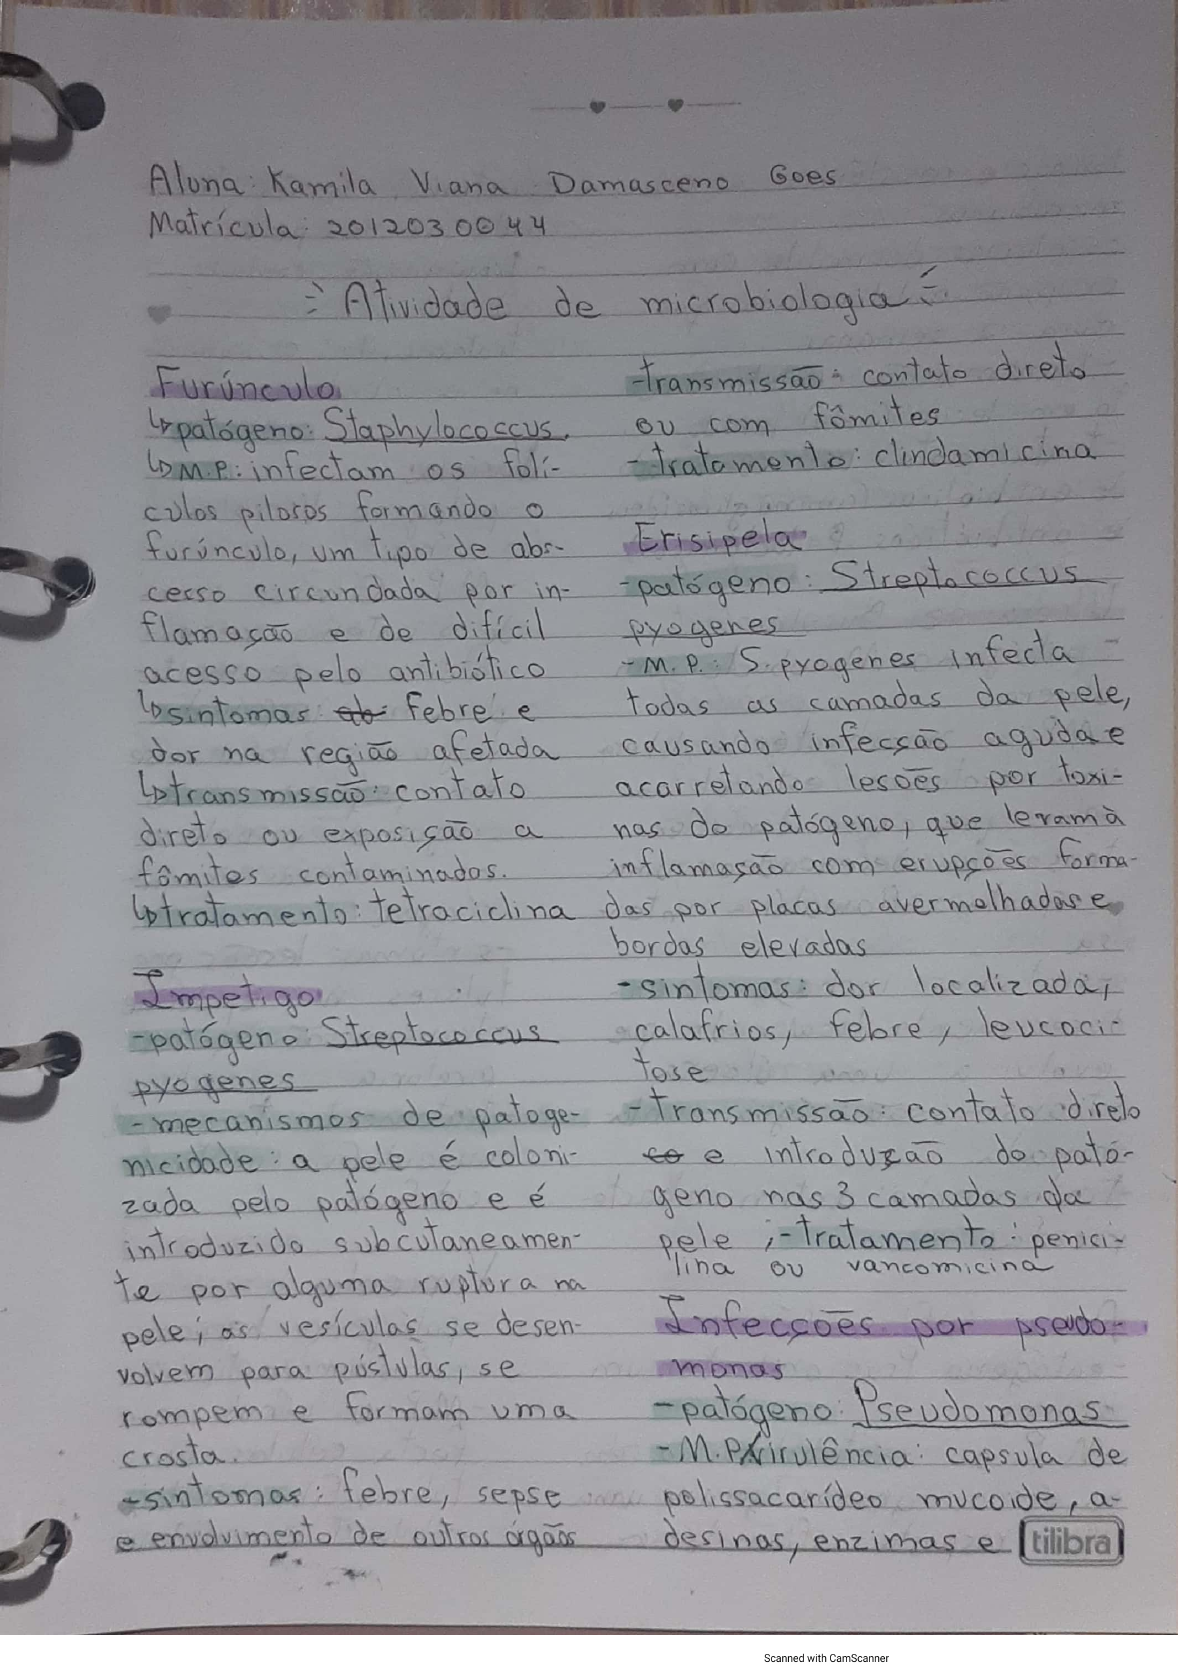 Aluna: Kamila Viana Damasceno Goes
Matrícula: 2012030044
Atividade de microbiologia
Furúnculo
↳patógeno: Staphylococcus.
↳M.P.: infectam os folí-
culos pilosos formando o
furúnculo, um tipo de abs-
cesso circundada por in-
flamação e de difícil
acesso pelo antibiótico
↳sintomas: febre e
dor na região afetada
↳transmissão: contato
direto ou exposição a
fômites contaminados.
↳tratamento: tetraciclina
Impetigo
-patógeno: Streptococcus
pyogenes
-mecanismos de patoge-
nicidade: a pele é coloni-
zada pelo patógeno e é
introduzido subcutaneamen-
te por alguma ruptura na
pele; as vesículas se desen-
volvem para pústulas, se
rompem e formam uma
crosta.
-sintomas: febre, sepse
e envolvimento de outros órgãos
-transmissão: contato direto
ou com fômites
-tratamento: clindamicina
Erisipela
-patógeno: Streptococcus
pyogenes
-M.P.: S. pyogenes infecta
todas as camadas da pele,
causando infecsão aguda e
acarretando lesões por toxi-
nas do patógeno, que levam à
inflamação com erupções forma-
das por placas avermelhadas e
bordas elevadas
-sintomas: dor localizada,
calafrios, febre, leucoci-
tose
-transmissão: contato direto
e introdução do pató-
geno nas 3 camadas da
pele ;-tratamento: penici-
lina ou vancomicina
Infecções por pseudo-
monas
-patógeno: Pseudomonas
-M.P/virulência: capsula de
polissacarídeo mucoide, a-
desinas, enzimas e
tilibra
Scanned with CamScanner